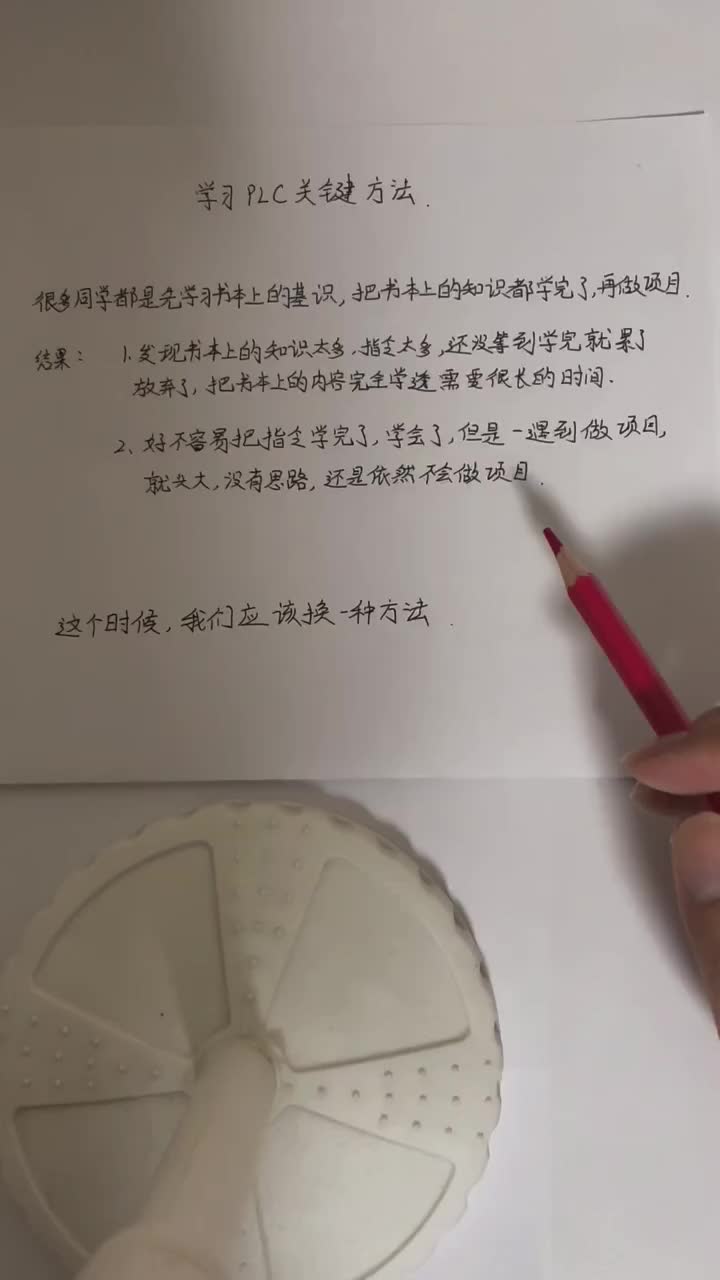 学习PLC关键方法.
很多同学都是先学习书本上的基识,把书本上的知识都学完了,再做项目.
结果: 1.发现书本上的知识太多.指令太多,还没等到学完就累了
放弃了,把书本上的内容完全学透需要很长的时间.
2、好不容易把指令学完了,学会了,但是一遇到做项目,
就头大,没有思路,还是依然不会做项目.
这个时候,我们应该换一种方法.